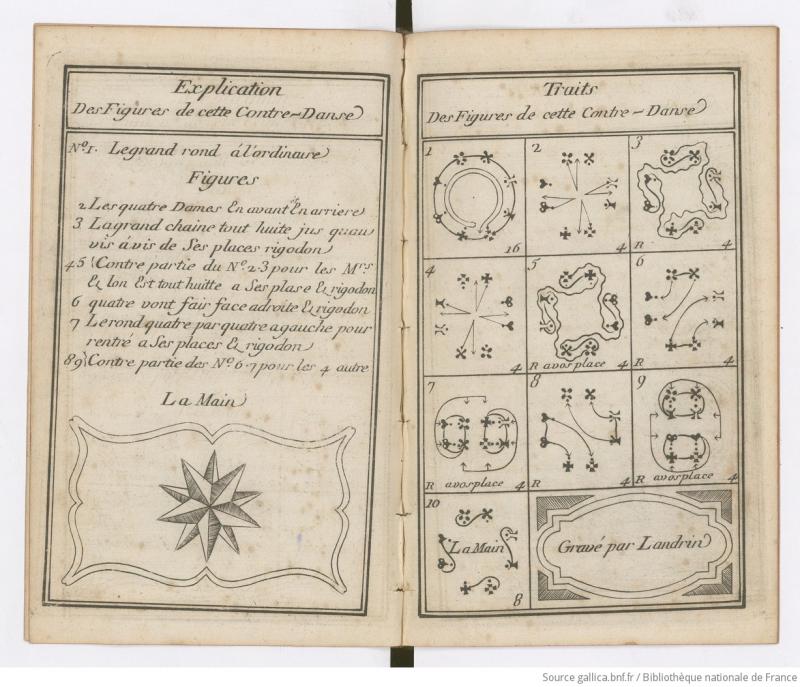 Explication
Des Figures de cette Contre-Danse
Nº 1. Le grand rond á l'ordinaire
Figures
2 Les quatre Dames En avant En arriere
3 Lagrand chaine tout huite jus quau
vis á vis de Ses places rigodon
4 5 Contre partie du Nº 2.3 pour les Mrs
& lon Est tout huitte a Ses plase & rigodon
6 quatre vont fair face adroite & rigodon
7 Le rond quatre par quatre a gauche pour
rentré a Ses places & rigodon
8 9 Contre partie des Nº 6.7 pour les 4 autre
La Main
Traits
Des Figures de cette Contre-Danse
1 16
2 4
3 R 4
4 4
5 R avos place 4
6 R 4
7 R avos place 4
8 R 4
9 R avos place 4
10 La Main 8
Gravé par Landrin
Source gallica.bnf.fr / Bibliothèque nationale de France